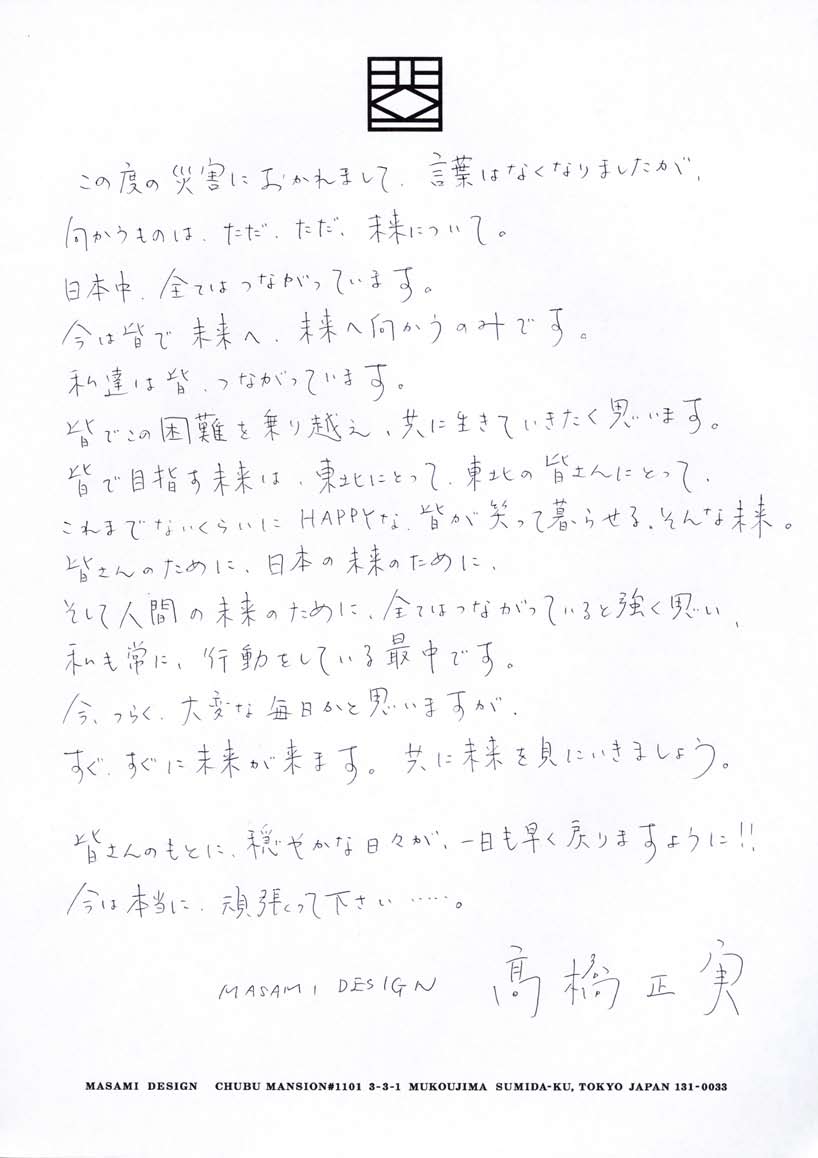 この度の災害におかれまして、言葉はなくなりましたが、
向かうものは、ただ、ただ、未来について。
日本中、全てはつながっています。
今は皆で未来へ、未来へ向かうのみです。
私達は皆、つながっています。
皆でこの困難を乗り越え、共に生きていきたく思います。
皆で目指す未来は、東北にとって、東北の皆さんにとって、
これまでないくらいに HAPPYな、皆が笑って暮らせる、そんな未来。
皆さんのために、日本の未来のために、
そして人間の未来のために、全てはつながっていると強く思い、
私も常に、行動をしている最中です。
今、つらく、大変な毎日かと思いますが、
すぐ、すぐに未来が来ます。共に未来を見にいきましょう。
皆さんのもとに、穏やかな日々が、一日も早く戻りますように!!
今は本当に、頑張って下さい……。
MASAMI DESIGN 髙橋正実
MASAMI DESIGN CHUBU MANSION#1101 3-3-1 MUKOUJIMA SUMIDA-KU, TOKYO JAPAN 131-0033